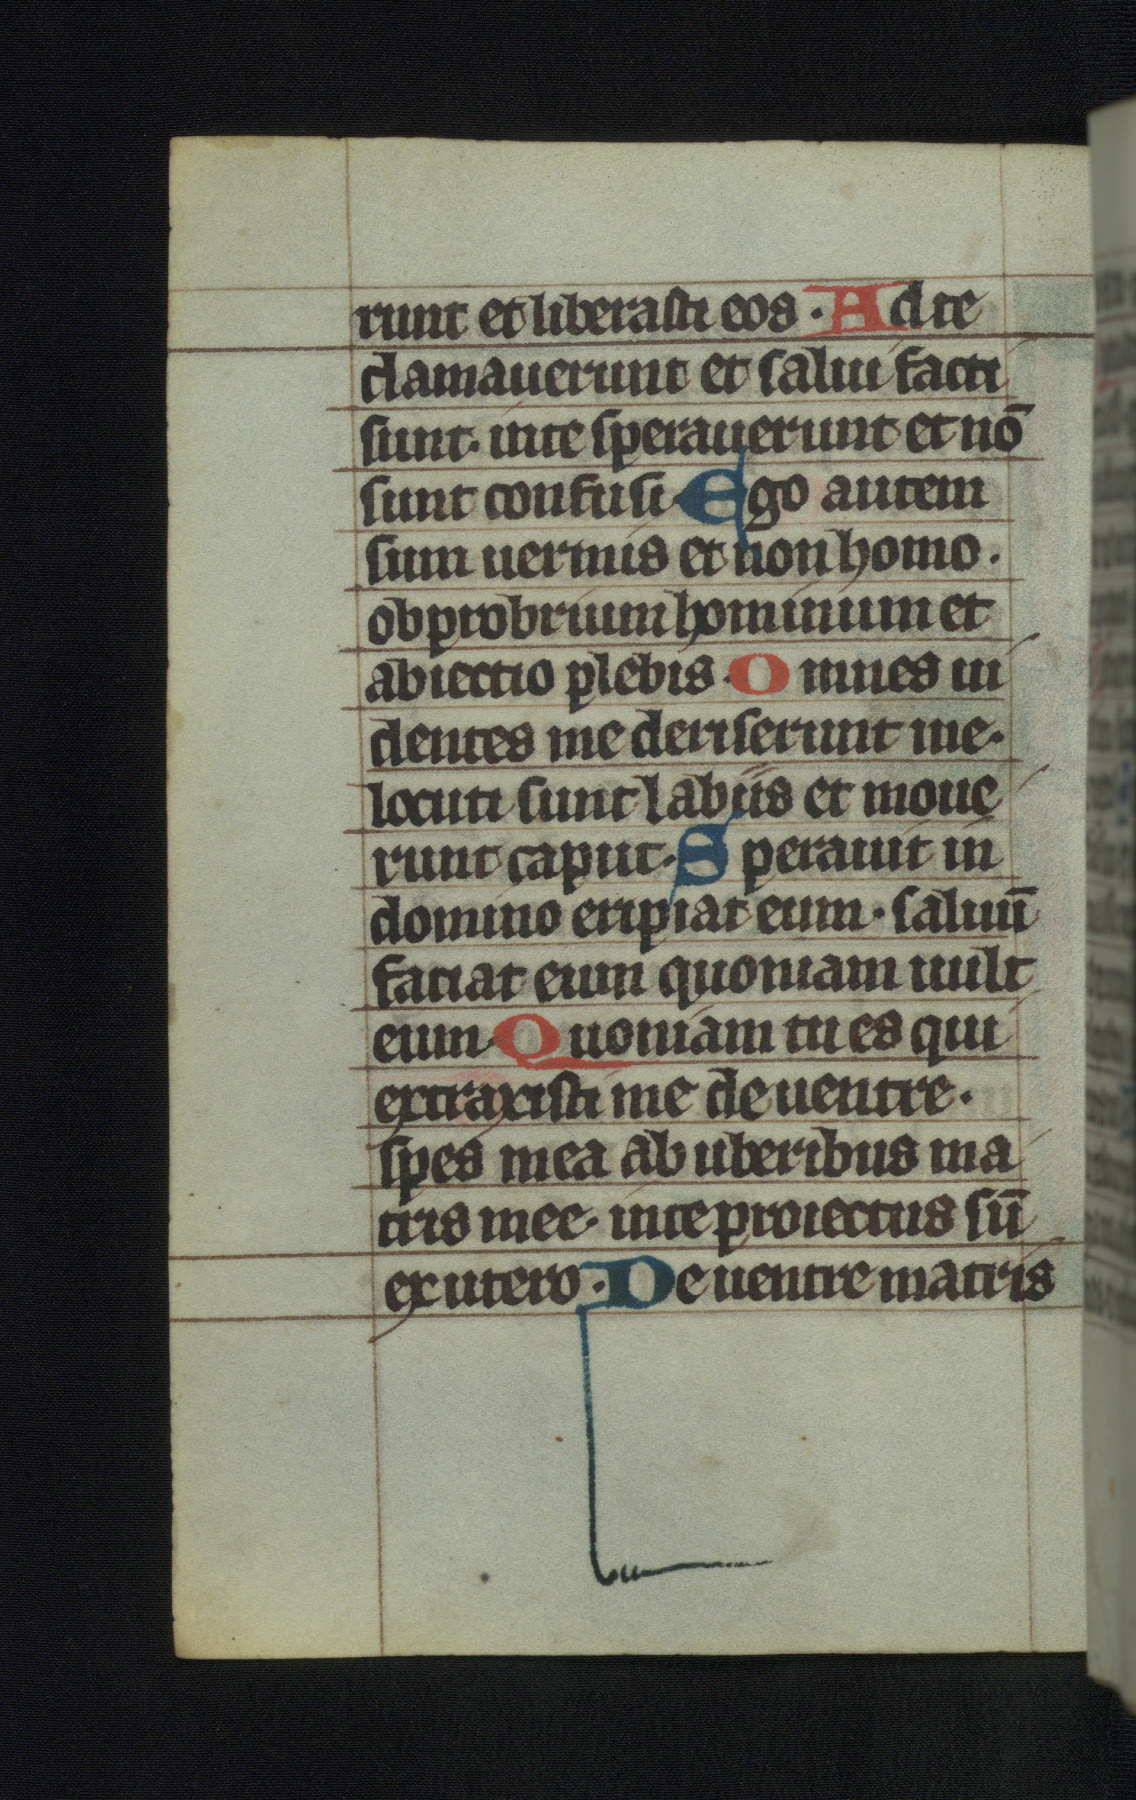 runt et liberasti eos · Ad te
clamauerunt et salui facti
sunt · in te sperauerunt et nō
sunt confusi · Ego autem
sum uermis et non homo ·
obprobrium hominum et
abiectio plebis · Omnes ui
dentes me deriserunt me ·
locuti sunt labiis et moue
runt caput · Sperauit in
domino eripiat eum · saluū
faciat eum quoniam uult
eum · Quoniam tu es qui
extraxisti me de uentre ·
spes mea ab uberibus ma
tris mee · in te proiectus sū
ex utero · De uentre matris